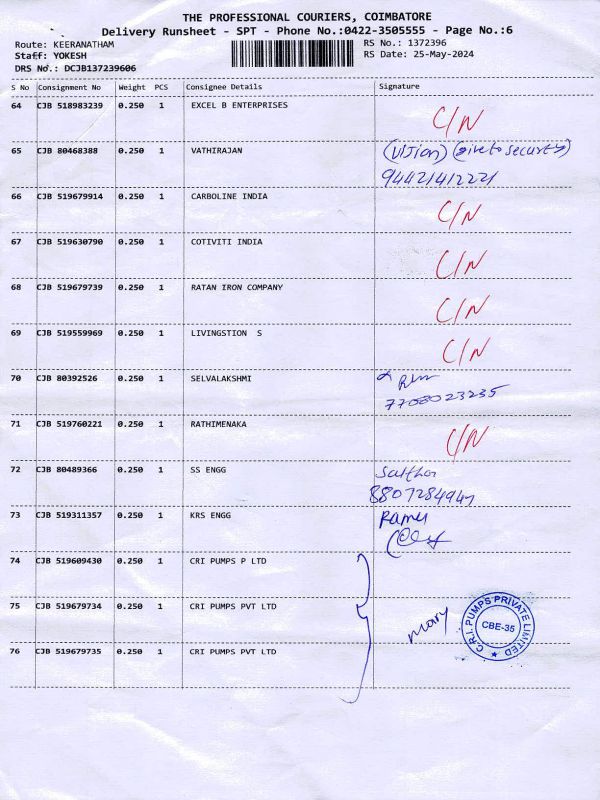 THE PROFESSIONAL COURIERS, COIMBATORE
Delivery Runsheet - SPT - Phone No.:0422-3505555 - Page No.:6
Route: KEERANATHAM RS No.: 1372396
Staff: YOKESH RS Date: 25-May-2024
DRS No.: DCJB137239606
S No Consignment No Weight PCS Consignee Details Signature
64 CJB 518983239 0.250 1 EXCEL B ENTERPRISES C/N
65 CJB 80468388 0.250 1 VATHIRAJAN (Vijian) (give to security)
94421412221
66 CJB 519679914 0.250 1 CARBOLINE INDIA C/N
67 CJB 519630790 0.250 1 COTIVITI INDIA C/N
68 CJB 519679739 0.250 1 RATAN IRON COMPANY C/N
69 CJB 519559969 0.250 1 LIVINGSTION S C/N
70 CJB 80392526 0.250 1 SELVALAKSHMI
7708023235
71 CJB 519760221 0.250 1 RATHIMENAKA C/N
72 CJB 80489366 0.250 1 SS ENGG
8807284947
73 CJB 519311357 0.250 1 KRS ENGG Ramu
74 CJB 519609430 0.250 1 CRI PUMPS P LTD
75 CJB 519679734 0.250 1 CRI PUMPS PVT LTD mary C.R.I. PUMPS PRIVATE LIMITED CBE-35
76 CJB 519679735 0.250 1 CRI PUMPS PVT LTD